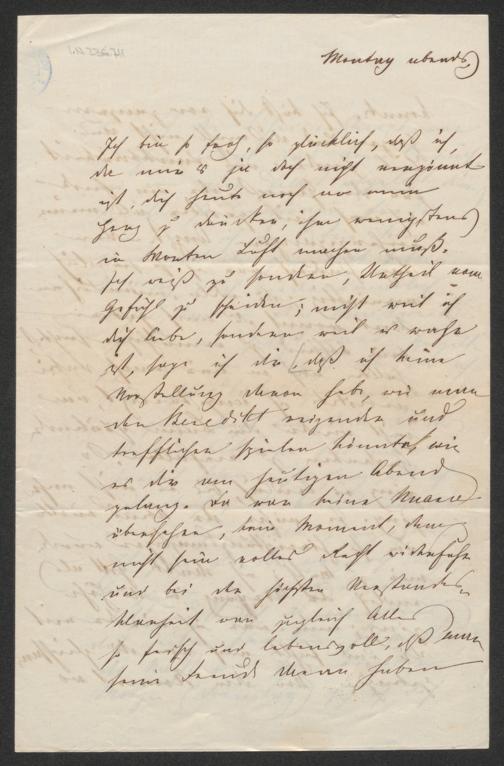 Montag abends.
Ich bin so froh, so glücklich, daß ich,
da mir's ja doch nicht vergönnt
ist, dich heute noch an mein
Herz zu drücken, ihm wenigstens
in Worten Luft machen muß.
Ich weiß zu sondern, Urtheil vom
Gefühl zu scheiden; nicht weil ich
dich liebe, sondern weil es wahr
ist, sage ich dir, daß ich keine
Vorstellung davon habe, wie man
den Benedikt reizender und
trefflicher spielen könnte, wie
es dir am heutigen Abend
gelang. Da war keine Nuance
übersehen, kein Moment, dem
nicht sein volles Recht widerfuhr
und bei der höchsten Verstandes-
klarheit war zugleich Alles
so frisch und lebensvoll, daß man
seine Freude daran haben